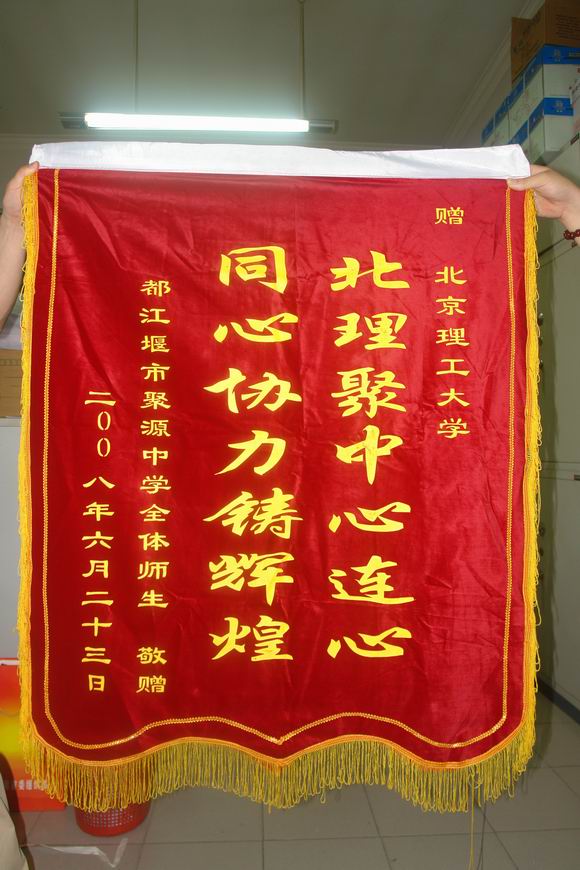 赠 北京理工大学
北理聚中心连心
同心协力铸辉煌
都江堰市聚源中学全体师生 敬赠
二00八年六月二十三日